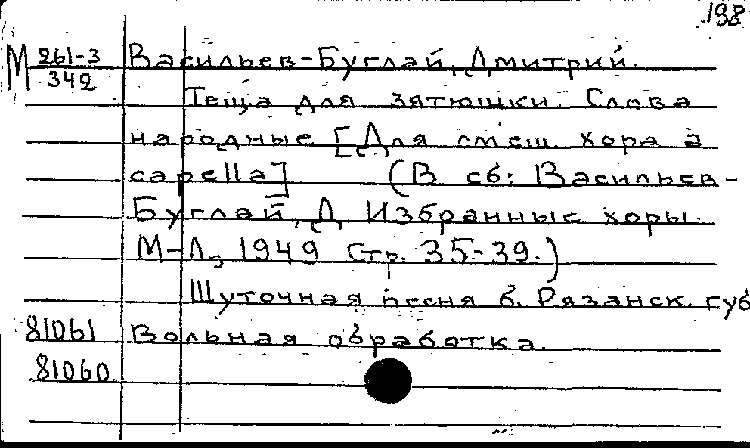 198
М 261-3/342 Васильев-Буглай, Дмитрий.
Теща для зятюшки. Слова
народные [Для смеш. хора a
capella] (В сб: Васильев-
Буглай, Д. Избранные хоры.
М-Л, 1949 Стр. 35-39.)
Шуточная песня б. Рязанск. губ
81061 Вольная обработка.
81060